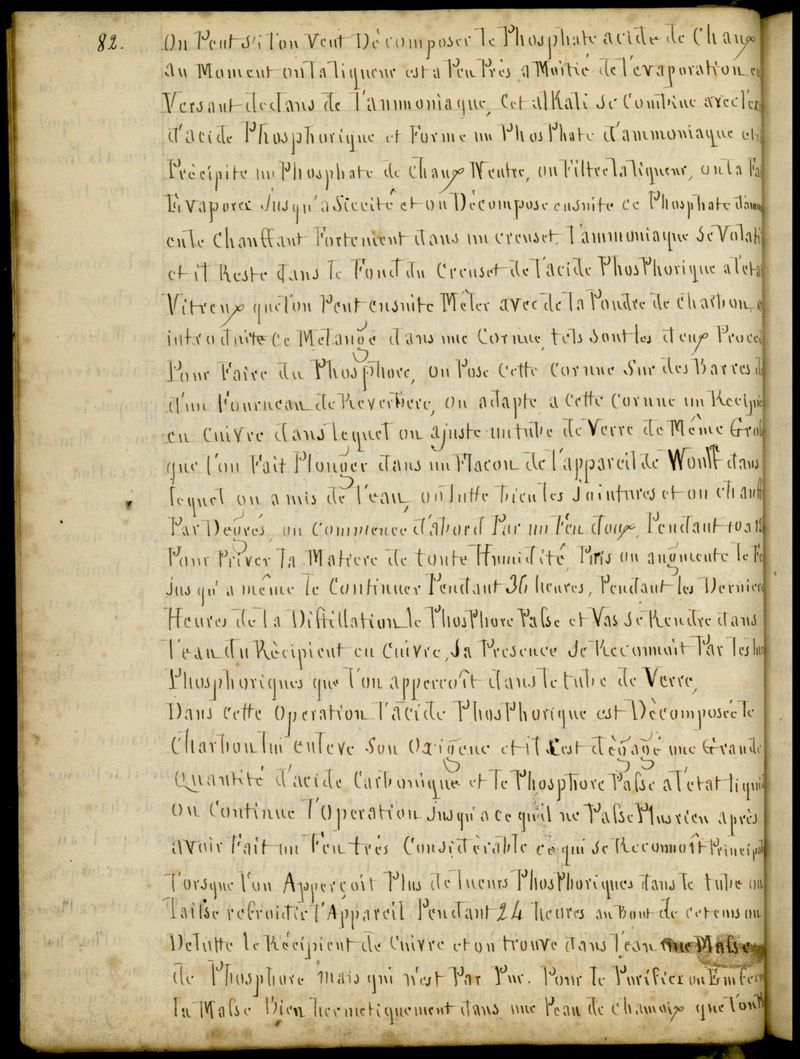 82.
On Peut s'il'on Veut Décomposer le Phosphate acide de Chaux
au Moment ou la liqueur est a Peu Près a Moitié de l'evaporation en
Versant dedans de l'ammoniaque, Cet alkali se Combine avec l'ex
d'acide Phosphorique et Forme un Phosphate d'ammoniaque et il
Précipite un Phosphate de Chaux Neutre, on Filtre la liqueur, on la Fa
Evaporer Jusqu'a Siccité et on Décompose ensuite ce Phosphate d'am
en le Chauffant Fortement dans un creuset, l'ammoniaque se Volati
et il Reste dans le Fond du Creuset de l'acide Phosphorique a l'eta
Vitreux que l'on Peut ensuite Mêler avec de la Poudre de Charbon, e
introduite Ce Mélange dans une Cornue, tels sont les deux Proce
Pour Faire du Phosphore, on Pose Cette Cornue Sur des Barres d
d'un Fourneau de Reverbere, on adapte a Cette Cornue un Recipie
en Cuivre dans lequel on ajuste un tube de Verre de Même Gros
que l'on Fait Plonger dans un Flacon de l'appareil de Woulf dans
lequel on a mis de l'eau, on lutte bien les Jointures et on Chauff
Par Degrés, on Commence d'abord Par un Feu doux, Pendant 10 a 12
Pour Priver la Matiere de toute Humidité, Puis on augmente le Fe
Jusqu'a même le Continuer Pendant 36 heures, Pendant les Derniere
Heures de la Distillation le Phosphore Passe et Vas se Rendre dans
l'eau du Rècipient en Cuivre, Sa Presence se Reconnoit Par les lue
Phosphoriques que l'on apperçoît dans le tube de Verre,
Dans Cette Operation l'acide Phosphorique est Dècomposée le
Charbon lui enleve Son Oxigene et il s'est dègagé une Grande
Quantité d'acide Carbonique et le Phosphore Passe a l'etat liquid
on Continue l'Operation Jusqu'a ce qu'il ne Passe Plus rien après
avoir Fait un Feu très Considèrable ce qui se Reconnoît Principal
lorsque l'on Apperçoit Plus de lueurs Phosphoriques dans le tube on
laisse refroidir l'Appareil Pendant 24 heures au Bout de ce tems on
Delutte le Récipient de Cuivre et on trouve dans l'eau une Masse
de Phosphore mais qui n'est Par Pur. Pour le Purifier on Enferm
la Masse Bien hermetiquement dans une Peau de Chamoix que l'on